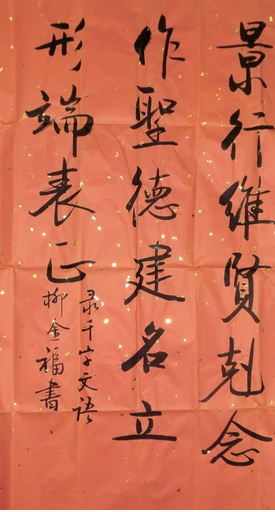 景行維賢剋念
作聖德建名立
形端表正
录千字文语
柳金福書